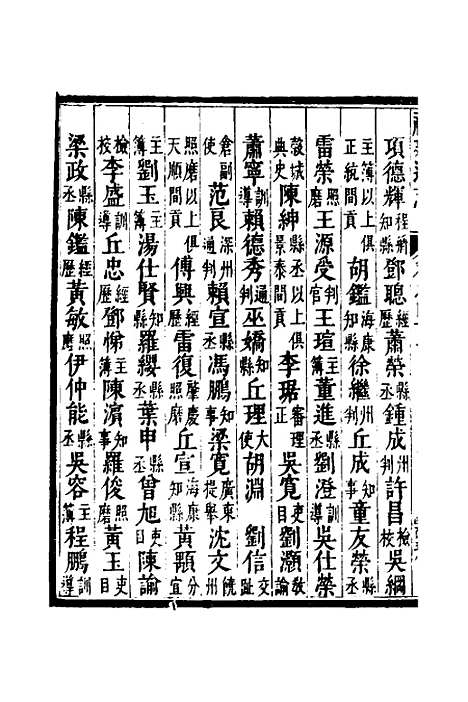 項德輝程鄉知縣鄧聰經歷蕭榮縣丞鍾成州判許昌檢校吳綱
主簿以上俱正統間貢胡鑑海康知縣徐繼州判丘成知事童友榮縣丞
雷榮照磨王源受判官王瑄主簿董進縣丞劉澄訓導吳仕榮
穀城典史陳紳縣丞以上俱景泰間貢李琚審理正吳寬吏目劉灝教諭
蕭寧訓導賴德秀通判巫嬌知縣丘理大使胡淵劉信交趾
倉副使范良深州通判賴宣縣丞馮鵬知事梁寬廣東提舉沈文饒州
照磨以上俱天順間貢傅興經歷雷復肇慶照磨丘宣海康知縣黃顯分宜
主簿劉玉主簿湯仕賢知縣羅纓縣丞葉申縣丞曾旭吏目陳諭
檢校李盛訓導丘忠經歷鄧悌主簿陳濵知事羅俊照磨黃玉吏目
梁政縣丞陳鑑經歷黃敏照磨伊仲能縣丞吳容主簿程鵬訓導